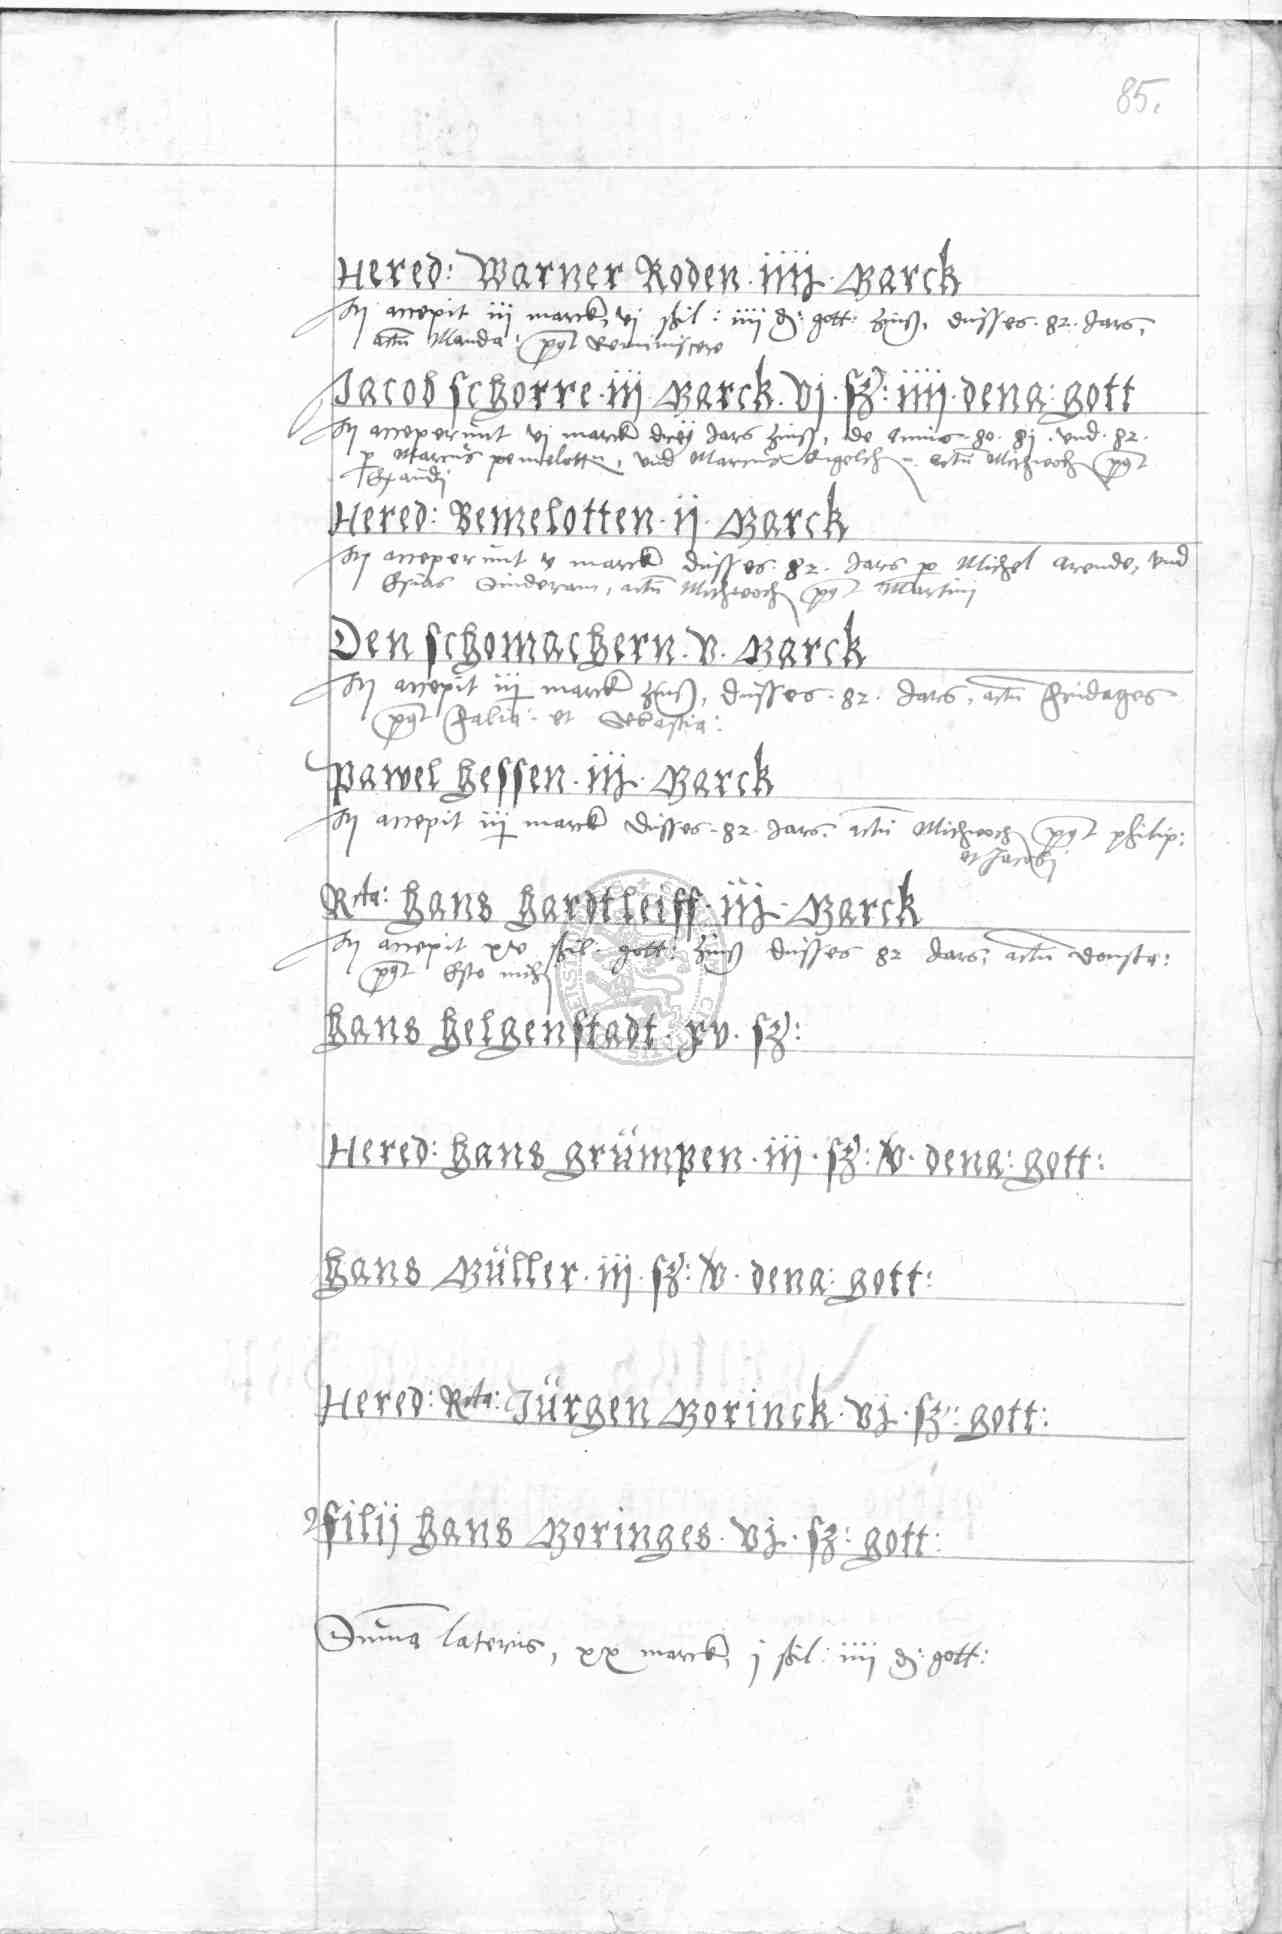 85.
Hered: Warner Roden. iiij. Marck
Hi accepit iij marck, vj shil: iiij d: gott: zinß, dusses. 82. Jars,
actu Manda: post Reminiscere
Jacob schorre. iij. Marck. vj. sz: iiij. dena: gott
Hi acceperunt vj marck drey Jars zinß, de annis. 80. 81. vnd. 82.
p Marcus pemelotten, vnd Marcus actu Michwoch post
Exaudi
Hered: Bemelotten. ij. Marck
Hi acceperunt v marck dusses. 82. Jars p Michel Arende, vnd
Sinderam, actu Michwoch post Martini
Den schomachern. v. Marck
Hi accepit iij marck zinß, dusses. 82. Jars, actu fridages
post fabia: et Sebastia:
Pawel hessen. iij. Marck
Hi accepit iij marck dusses. 82. Jars. actu Michwoch post philip:
et Jacobi
Rta: hans hardtleiff. iij. Marck
Hi accepit xv shil. gott: zinß dusses 82 Jars, actu donsta:
post Esto mihi
hans helgenstadt. xv. sz:
Hered: hans grümpen. iij. sz: v. dena: gott:
hans Müller. iij. sz: v. dena: gott:
Hered: Rta: Jürgen Morinck. vj. sz: gott:
2 filij hans Moringes. vj. sz: gott:
Suma lateris, xx marck, j shil: iiij d: gott: